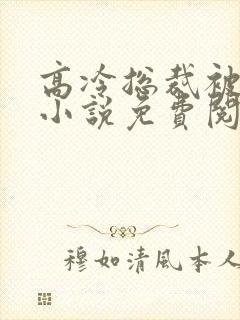 高冷总裁被
小説免費閱
穆如清風本人